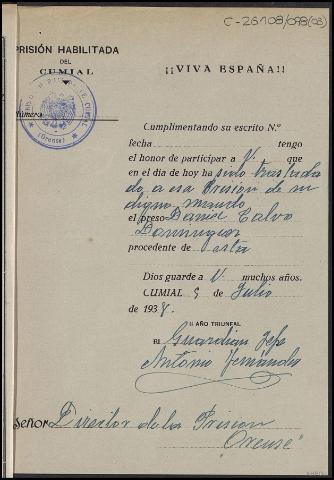 C-26108/098(03)
PRISIÓN HABILITADA
DEL
CUMIAL
¡¡VIVA ESPAÑA!!
(Orense)
Número
Cumplimentando su escrito N.º
fecha tengo
el honor de participar a V. que
en el día de hoy ha sido traslada
do, a esa Prisión de su
digno mando
el preso Daniel Calvo
Dominguez
procedente de esta
Dios guarde a V. muchos años.
CUMIAL 5 de Julio
de 1938.
II AÑO TRIUNFAL
El Guardian Jefe
Antonio Fernández
SEÑOR Director de la Prision
"Orense"